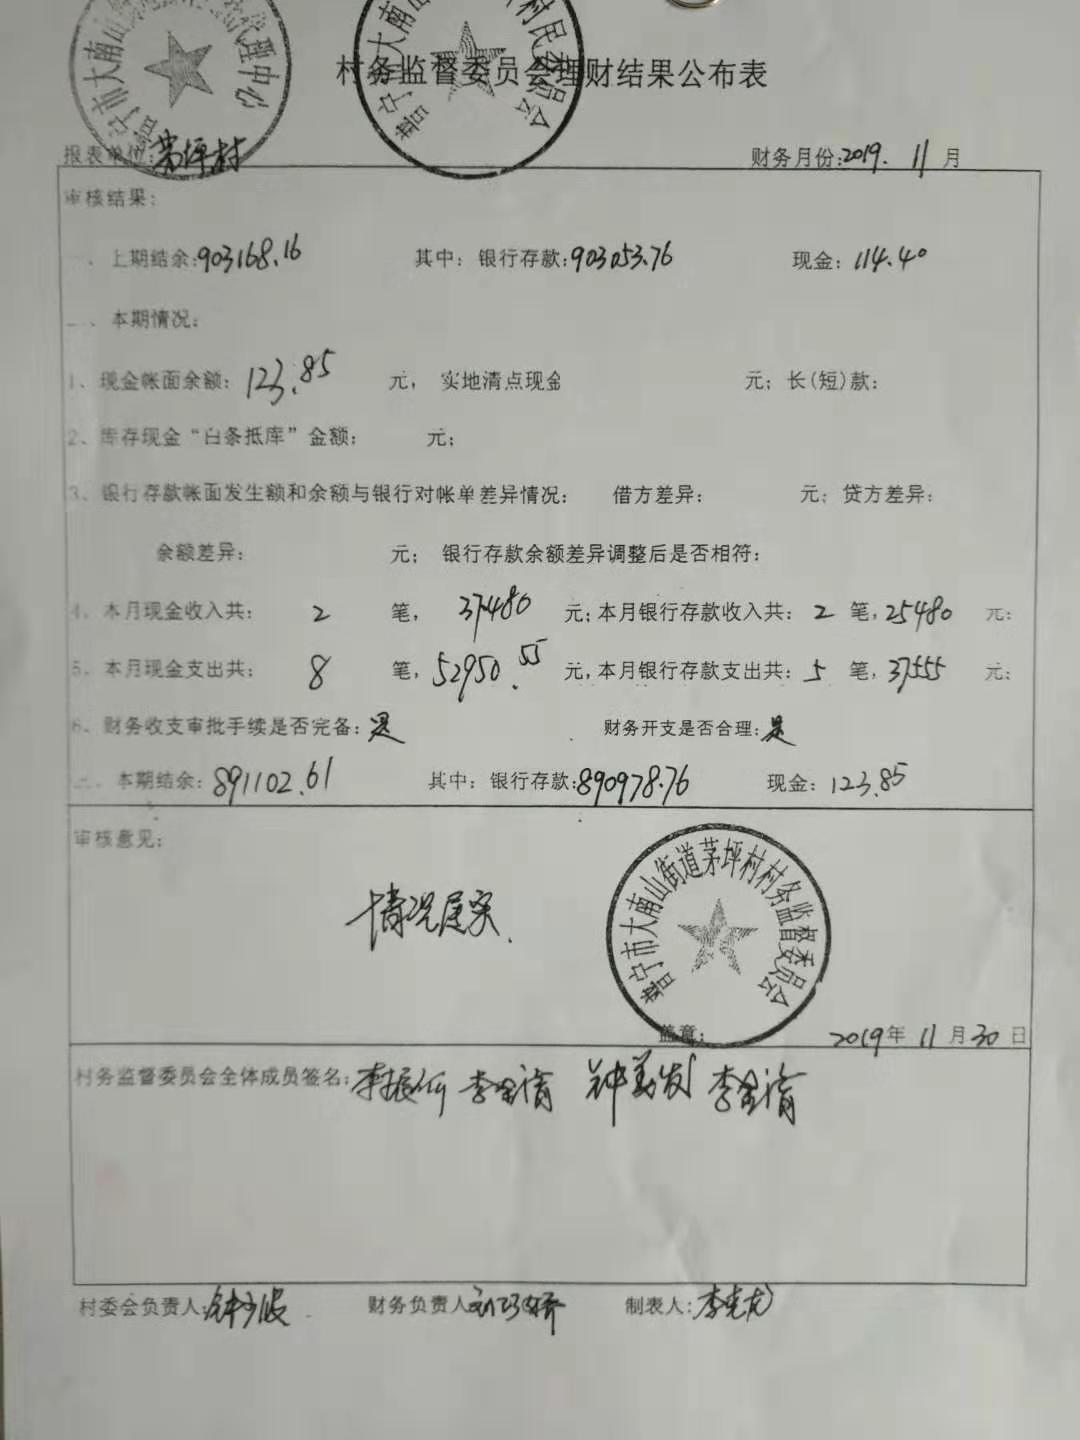 村务监督委员会理财结果公布表
普宁市大南山街道 代理中心
普宁市大南山 村民委员会
报表单位:茅坪村 财务月份:2019. 11 月
审核结果:
一、上期结余:903168.16 其中: 银行存款:903053.76 现金: 114.40
二、本期情况:
1、现金帐面余额: 123.85 元, 实地清点现金 元; 长(短)款:
2、库存现金“白条抵库”金额: 元;
3、银行存款帐面发生额和余额与银行对帐单差异情况: 借方差异: 元; 贷方差异:
余额差异: 元; 银行存款余额差异调整后是否相符:
4、本月现金收入共: 2 笔, 37480 元;本月银行存款收入共: 2 笔,25480 元;
5、本月现金支出共: 8 笔,52950.55 元,本月银行存款支出共: 5 笔,37555 元;
6、财务收支审批手续是否完备:是 财务开支是否合理:是
三、本期结余:891102.61 其中: 银行存款:890978.76 现金: 123.85
审核意见:
情况属实.
普宁市大南山街道茅坪村村务监督委员会
盖章: 2019年 11 月30日
村务监督委员会全体成员签名:
村委会负责人:钟少波 财务负责人 制表人:李克龙